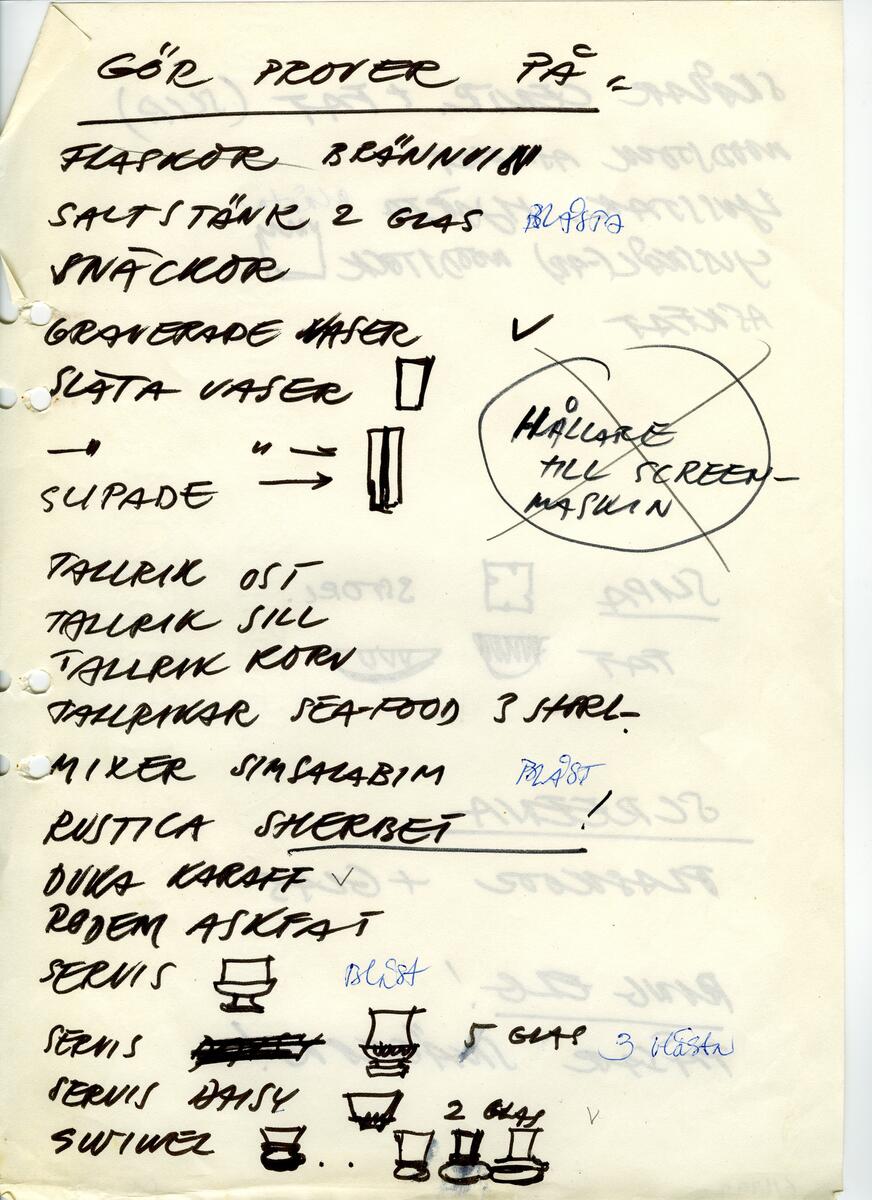 GÖR PROVER PÅ -
FLASKOR BRÄNNVIN
SALTSTÄNK 2 GLAS BLÅSTA
SNÄCKOR
GRAVERADE VASER ✓
SLÄTA VASER
—"— "—
SLIPADE →
HÅLLARE
TILL SCREEN-
MASKIN
TALLRIK OST
TALLRIK SILL
TALLRIK KORV
TALLRIKAR SEA-FOOD 3 STORL.
MIXER SIMSALABIM BLÅST
RUSTICA SHERBET !
DUKA KARAFF ✓
RODEM ASKFAT
SERVIS BLÅST
SERVIS 5 GLAS 3 BLÅSTA
SERVIS DAISY 2 GLAS ✓
SWIWEL . .